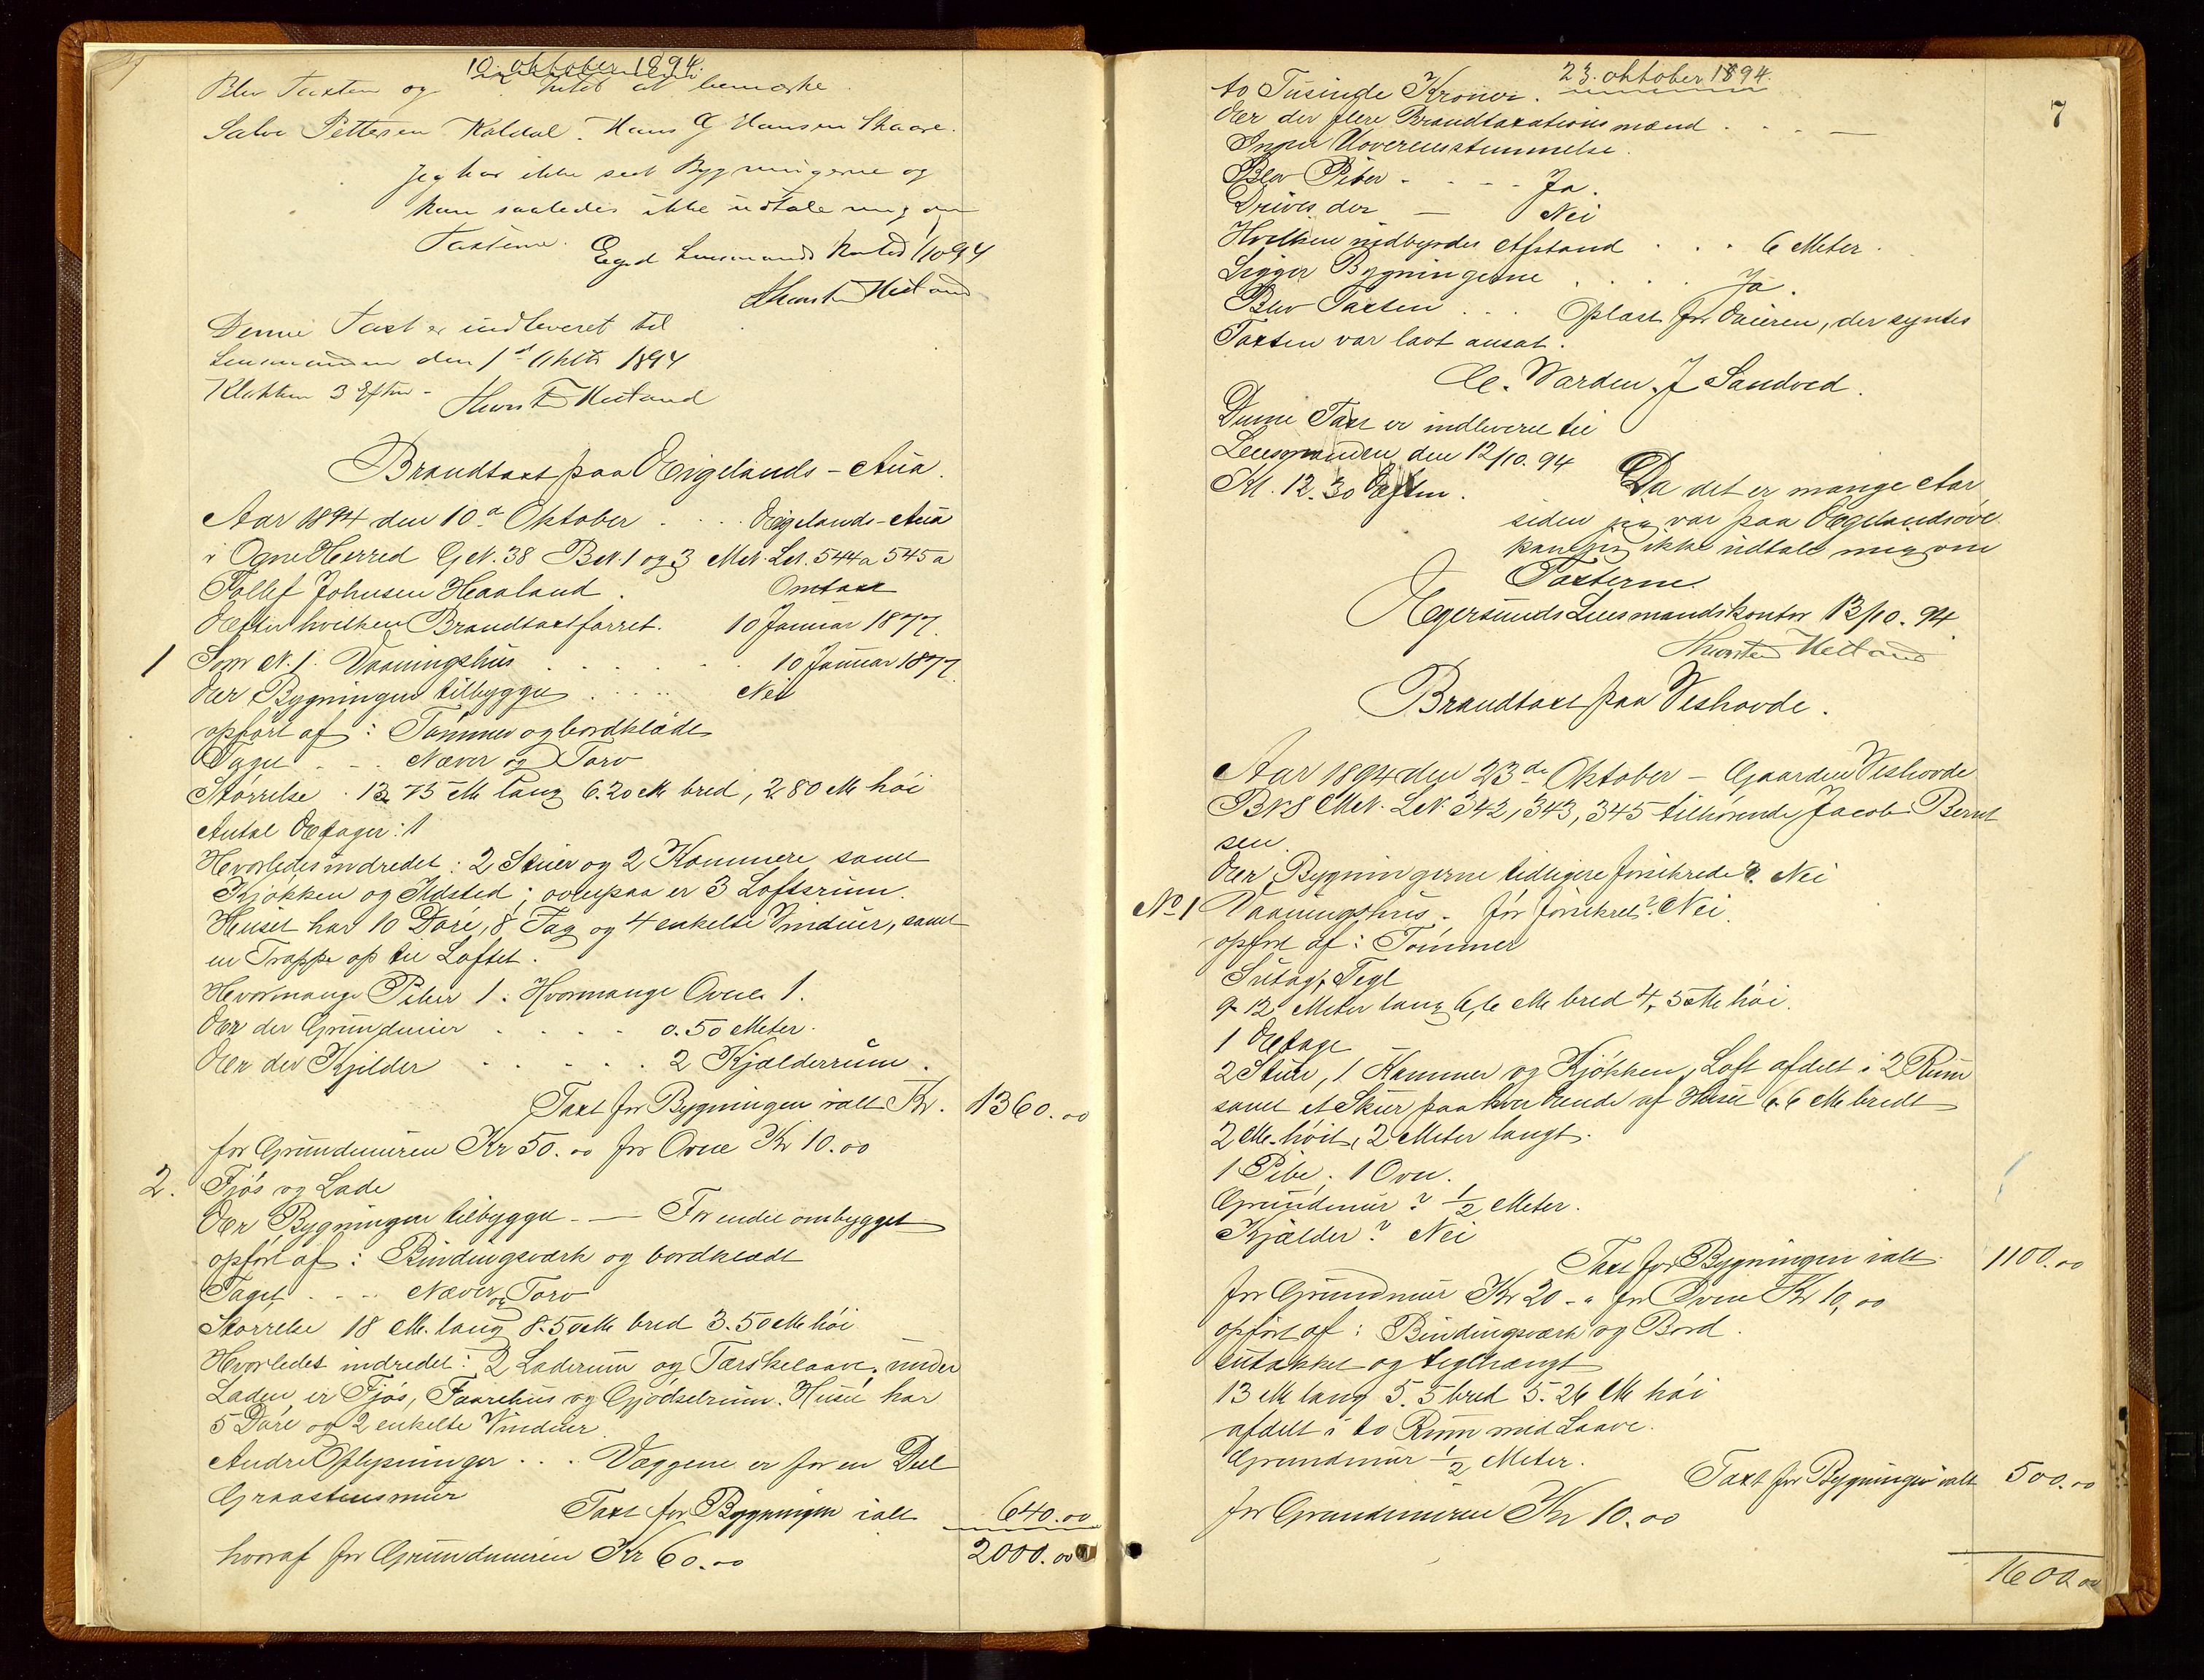 10. oktober 1894.
Blev Taxten og intet at bemærke.
Salve Pettersen Koldal. Hans G Hansen Skaare.
Jeg har ikke seet Bygningerne og
kan saaledes ikke udtale mig om
Taxterne.
Egsd Lensmands Kontor 1/10 94
Thorsten Hetland
Denne Taxt er indleveret til
Lensmanden den 1ste Okttr 1894
Klokken 3 Eftm -
Thorsten Hetland
Brandtaxt paa Eigelands-Aua.
Aar 1894 den 10de Oktober . . . Eigelands-Aua
i Ogne Herred G.N. 38 B.N. 1 og 3 M.N. L.N. 544a 545a
Tollef Johnsen Haaland . Omtaxt
Efter hvilken Brandtaxtforret. 10 Januar 1877.
1 Som N. 1. Vaaningshus . . . . . 10 Januar 1877.
Er Bygningen tilbygget . . . . Nei
opført af : Tømmer og bordklædt
Taget . - . Næver og Torv
Størrelse . 13,75 M lang 6.20 M bred, 2,80 M høi
Antal Etager : 1
Hvorledes indredet : 2 Stuer og 2 Kammere samt
Kjøkken og Ildsted ; ovenpaa er 3 Loftsrum.
Huset har 10 Døre, 8 Fag og 4 enkelte Vinduer, samt
en Trappe op til Loftet.
Hvormange Piber 1. Hvormange Ovne 1.
Er der Grundmur . . . . . 0.50 Meter.
Er der Kjelder . . . . . 2 Kjælderrum.
Taxt for Bygningen ialt Kr. 1360.00
for Grundmuren Kr 50.00 for Ovne Kr 10.00
2. Fjøs og Lade
Er Bygningen tilbygget - — For endel ombygget
opført af : Bindingsværk og bordklædt
Taget . - - . Næver og Torv
Størrelse 18 M. lang 8.50 M bred 3.50 M høi
Hvorledes indredet : 2 Laderum og Tærskelaave, under
Laden er Fjøs, Faarehus og Gjødselrum. Huset har
5 Døre og 2 enkelte Vinduer.
Andre Oplysninger . . . Væggene er for en Deel
Graastensmur
Taxt for Bygningen ialt 640.00
hvoraf for Grundmuren Kr 60.00 2000.00
23. oktober 1894.
7
to Tusinde Kroner.
Er der flere Brandtaxationsmænd . . . —
Ingen Uoverensstemmelse.
Blev Piber - . - - . Ja.
Drives der — Nei
Hvilken indbyrdes Afstand . . . 6 Meter.
Ligger Bygningerne . . . . Ja.
Blev Taxten . . . Oplæst for Eieren, der syntes
Taxten var lavt ansat.
C. Warden. J Sandved.
Denne Taxt er indleveret til
Lensmanden den 12/10. 94
Kl. 12.30 Eftm.
Da det er mange Aar
siden jeg var paa Eegelandsove
kan jeg ikke udtale mig om
Taxterne.
Egersunds Lensmandskontor 13/10. 94.
Thorsten Hetland
Brandtaxt paa Veshovde.
Aar 1894 den 23de Oktober — Gaarden Veshovde
B N 8 M.N. L.N. 342, 343, 345 tilhørende Jacob Bernt
sen.
Er Bygningerne tidligere forsikrede? Nei
No 1 Vaaningshus. før forsikret? Nei.
opført af : Tømmer
Sutag, Tegl
9.12 Meter lang 6,6 M bred 4,5 M høi.
1 Etage
2 Stuer, 1 Kammer og Kjøkken, Loft afdelt i 2 Rum
samt et Skur paa hver Ende af Huset 6.6 M bredt
2 M. høit, 2 Meter langt.
1 Pibe, 1 Ovn.
Grundmur ? 1/2 Meter.
Kjælder ? Nei
Taxt for Bygningen ialt 1100.00
for Grundmur Kr 20 - " for Ovne Kr 10,00
opført af : Bindingsværk og Bord.
sutakket og teglhængt
13 M lang 5.5 bred 5.26 M høi
afdelt i to Rum med Laave.
Grundmur 1/2 Meter.
Taxt for Bygningen ialt 500.00
for Grundmuren Kr 10.00
1600.00